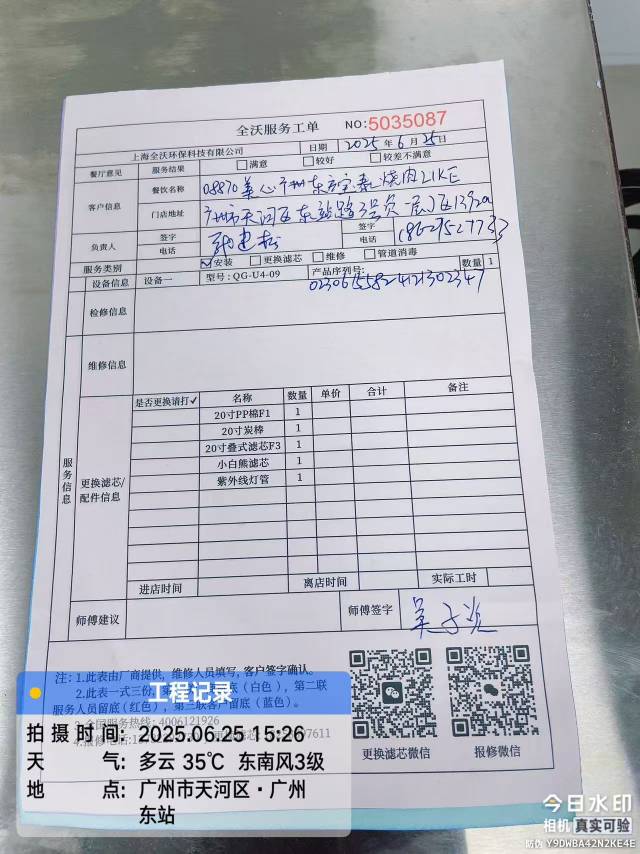 全沃服务工单 NO:5035087
上海全沃环保科技有限公司 日期 2025年6月25日
餐厅意见 服务结果 满意 较好 较差不满意
客户信息 餐饮名称 08870美心广州东方宝泰烧肉LIKE
门店地址 广州市天河区东站路
负责人 签字 电话 签字 电话 18627527733
服务类别 安装 更换滤芯 维修 管道消毒
设备信息 设备一 型号:QG-U4-09 产品序列号: 数量 1
检修信息
维修信息
服务信息
更换滤芯/配件信息
是否更换请打✓ 名称 数量 单价 合计 备注
20寸PP棉F1 1
20寸炭棒 1
20寸叠式滤芯F3 1
小白熊滤芯 1
紫外线灯管 1
进店时间 离店时间 实际工时
师傅建议 师傅签字
注:1.此表由厂商提供,维修人员填写,客户签字确认。
2.此表一式三份, 底(白色),第二联
服务人员留底(红色),第三联客户留底(蓝色)。
服务热线:4006121926
更换滤芯微信 报修微信
工程记录
拍摄时间: 2025.06.25 15:26
天气: 多云 35℃ 东南风3级
地点: 广州市天河区·广州
东站
今日水印
相机 真实可验
防伪 Y9DWBA42N2KE4E